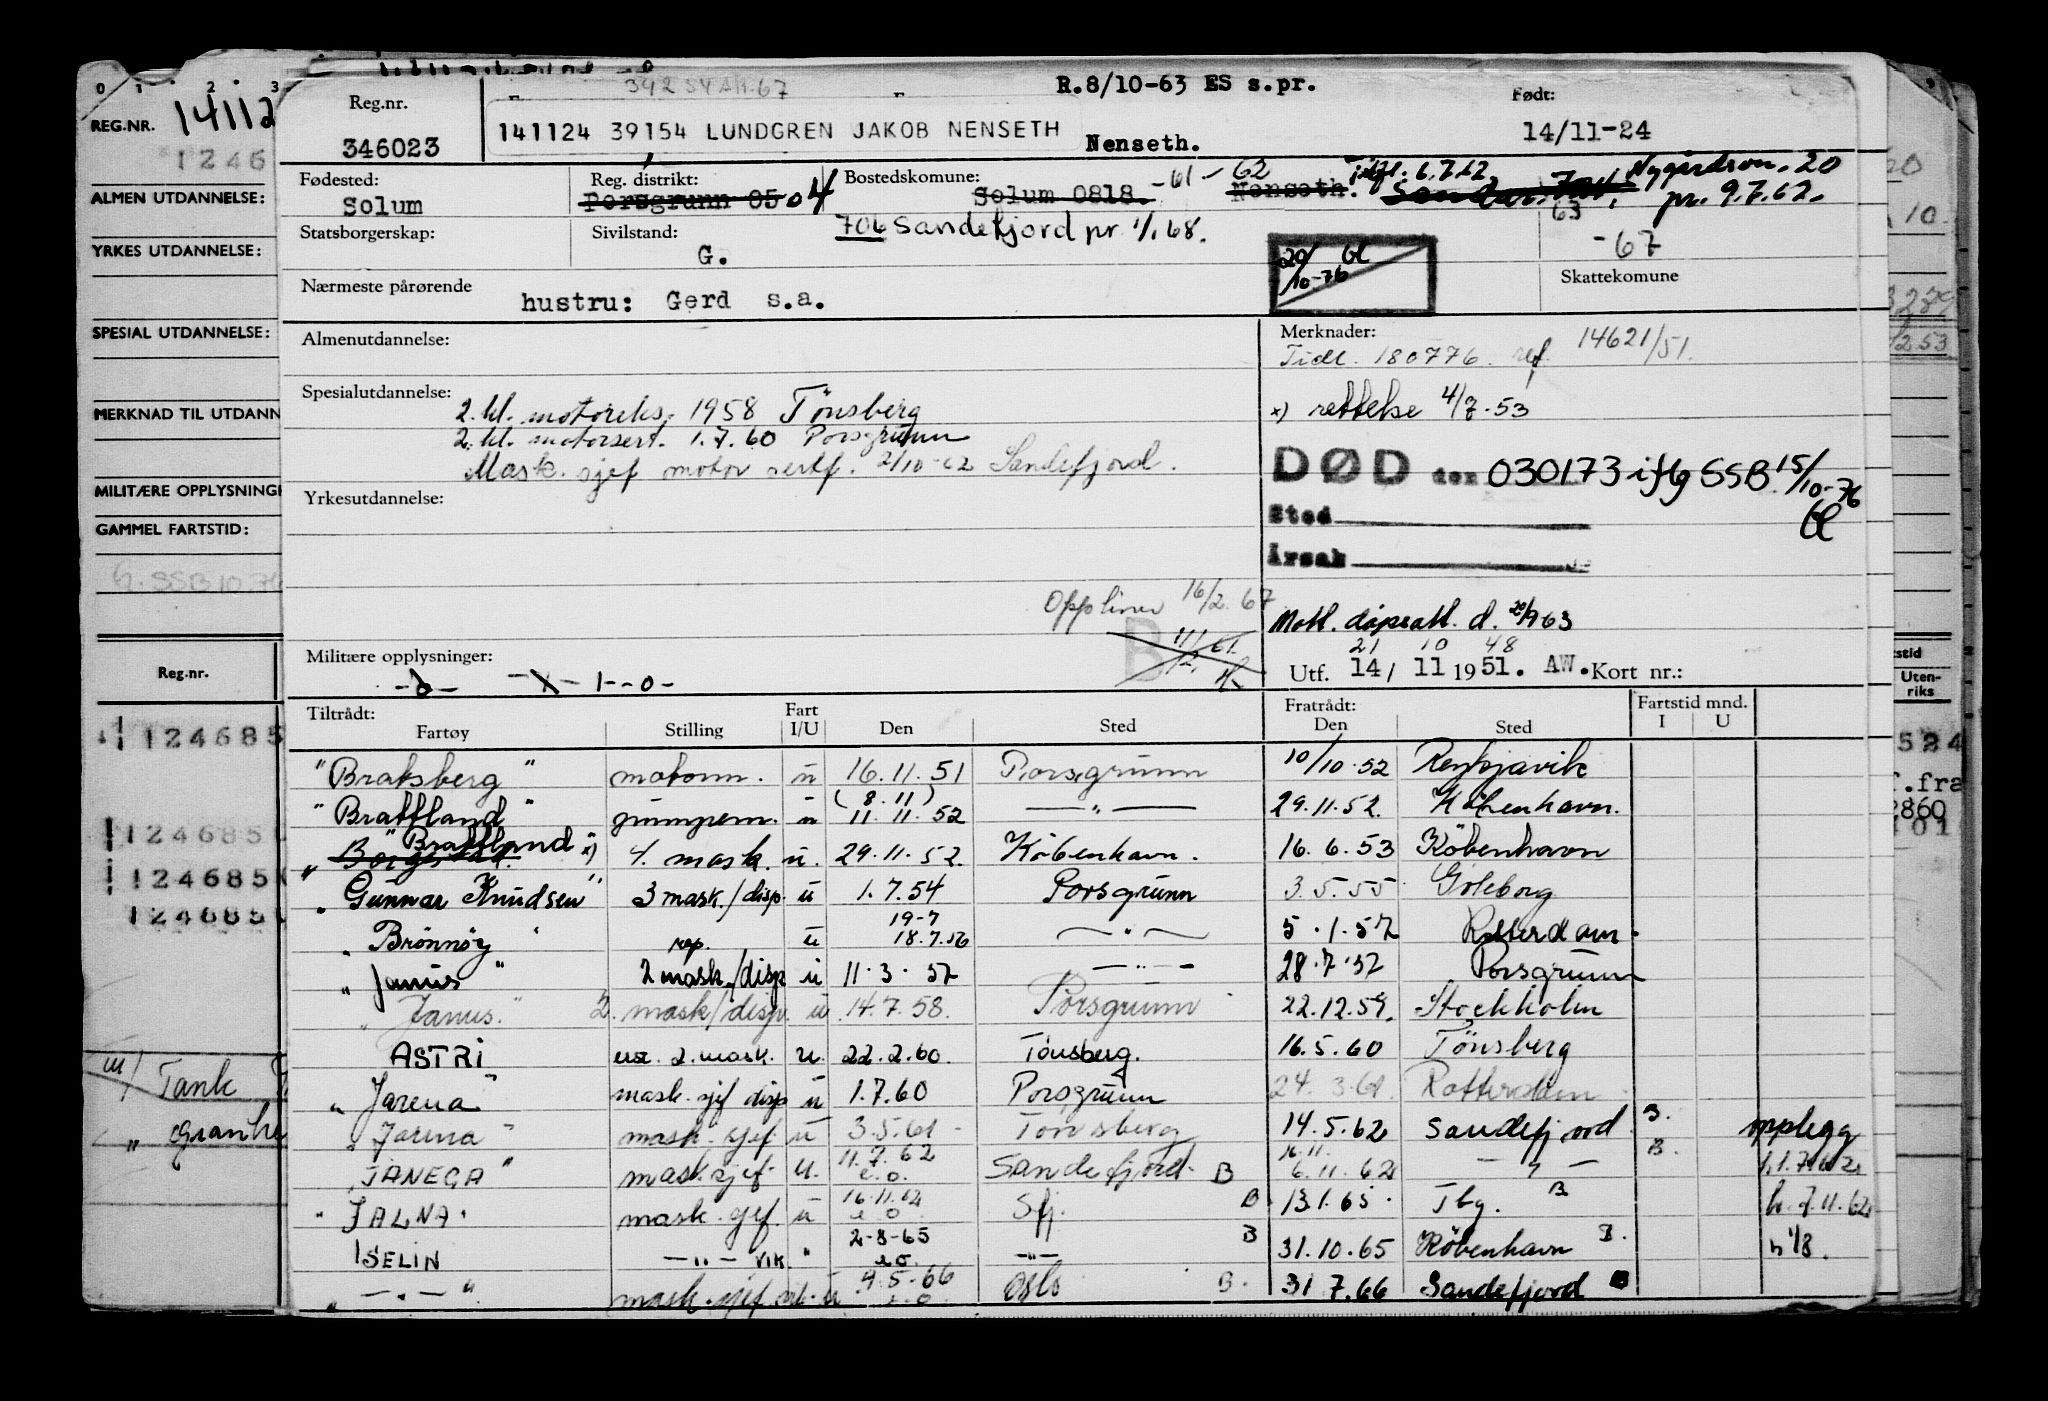 0 1 2 3
R.8/10-63 ES s.pr.
REG.NR. 14112
Reg.nr.
346023
141124 39154 LUNDGREN JAKOB NENSETH
Nenseth.
Født:
14/11-24
1246
ALMEN UTDANNELSE:
YRKES UTDANNELSE:
SPESIAL UTDANNELSE:
MERKNAD TIL UTDANN
MILITÆRE OPPLYSNING
GAMMEL FARTSTID:
G. SSB 10.76
Reg.nr.
124685
124685
124685
124685
Tank
Fødested:
Solum
Reg. distrikt:
Porsgrunn 05 04
Bostedskomune:
Solum 0818. -61-62
Nenseth.
6.7.62
pr. 9.7.62.
63
-67
706 Sandefjord pr 1/1 68.
Statsborgerskap:
Sivilstand:
G.
20/10-76
Skattekomune
Nærmeste pårørende
hustru: Gerd s.a.
Almenutdannelse:
Merknader:
Tidl. 180776. ref. 14621/51.
x) rettelse 4/7.53
Spesialutdannelse:
2. kl. motoreks. 1958 Tönsberg
2. kl. motorsert. 1.7.60 Porsgrunn
Mask. sjef motor sertf. 2/10-62 Sandefjord.
DØD den 030173 iflg SSB 15/10-76
Sted
Årsak
Yrkesutdannelse:
16/2.67
B
Militære opplysninger:
21 10 48
Utf. 14/ 11 1951. AW. Kort nr.:
Tiltrådt:
Fartøy Stilling Fart I/U Den Sted
Fratrådt:
Den Sted Fartstid mnd. I U
Uten-
riks
524
.fra
2860
" Bratsberg " motorm. u 16.11.51 Porsgrunn 10/10.52 Reykjavik
" Brattland " u (8.11) 11.11.52 — " — 29.11.52. Köbenhavn.
" Brattland " x) 4. mask. u. 29.11.52. Köbenhavn. 16.6.53 Köbenhavn
" Gunnar Knudsen " 3 mask./disp. u 1.7.54 Porsgrunn 3.5.55 Göteborg
" Brönnöy " rep. u 19-7 18.7.56 — " — 5.1.57 Rotterdam.
" Janus " 2 mask./disp u 11.3.57 — " — 28.7.57 Porsgrunn
" Janus. " 2. mask/disp. u 14.7.58. Porsgrunn 22.12.59. Stockholm
ASTRI 2. mask. u. 22.2.60. Tönsberg. 16.5.60 Tönsberg
" Jarena " mask. sjef disp u 1.7.60 Porsgrunn 24.3.61. Rotterdam
" Jarena " mask. sjef u 3.5.61 - Tönsberg 14.5.62 Sandefjord B. opplegg
" JANEGA " mask. sjef u. 11.7.62 e.o. Sandefjord. B 16.11. 6.11.62 — " — B. 1.1.7.62
" JALNA " mask. sjef. u 16.11.62 e.o. Sfj. B. 13.1.65. Tbg. B h. 7.11.62
ISELIN — " — vik. " 2-8-65 e.o. — " — B 31.10.65 Köbenhavn B. h 1/8.
" — " — " mask. sjef u 4.5.66 e.o. Oslo B. 31.7.66 Sandefjord B